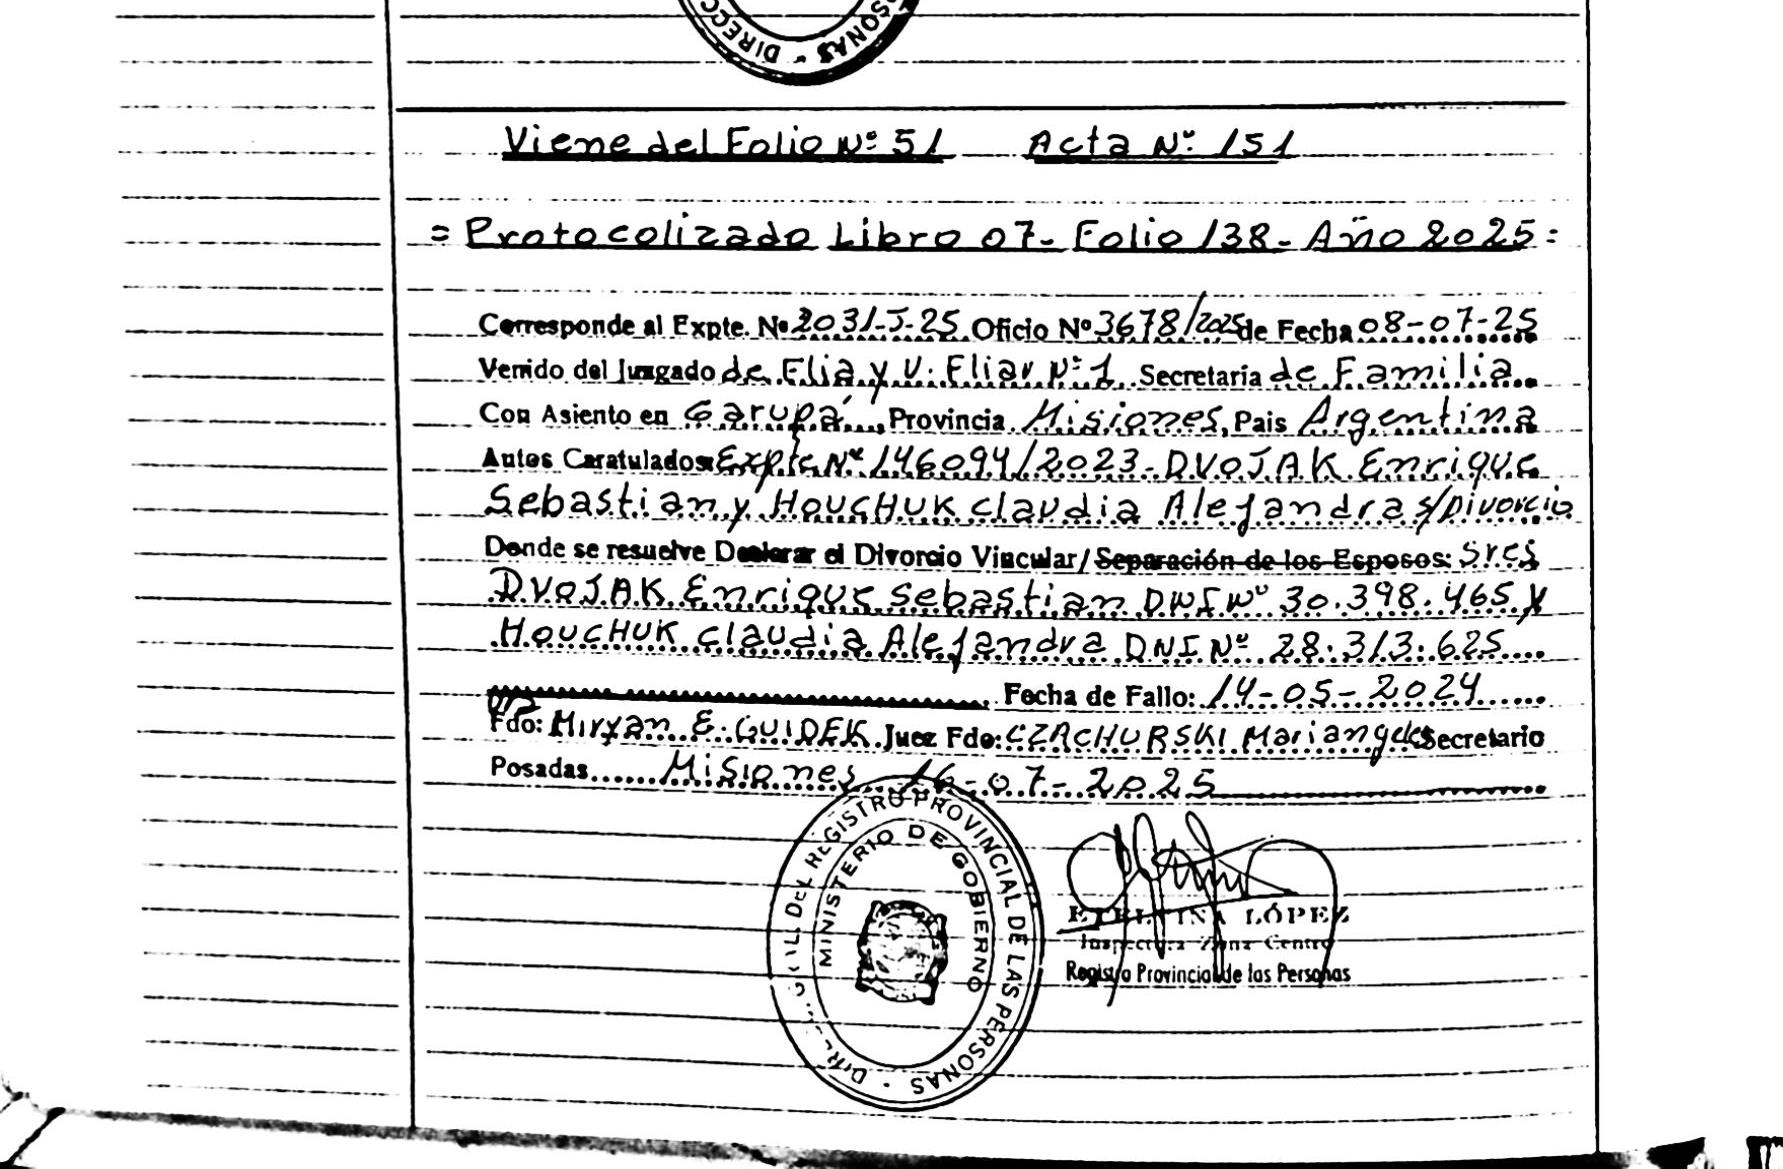 DIRECC SONAS -
Viene del Folio Nº 51 Acta Nº 151
= Protocolizado Libro 07- Folio 138- Año 2025 =
Corresponde al Expte. Nº 2031-J-25 Oficio Nº 3678/2025 de Fecha 08-07-25
Venido del Juzgado de Flia y V. Fliar Nº 1 Secretaria de Familia
Con Asiento en Garupá, Provincia Misiones, Pais Argentina
Autos Caratulados: Expte Nº 146094/2023- DVOJAK Enrique
Sebastian y HOUCHUK Claudia Alejandra s/Divorcio
Donde se resuelve Declarar el Divorcio Vincular/Separación de los Esposos: Sres
DVOJAK Enrique Sebastian DNI Nº 30.398.465 y
HOUCHUK Claudia Alejandra DNI Nº 28.313.625
Fecha de Fallo: 14-05-2024
Fdo: Miryan E. GUIDEK Juez Fdo: CZACHURSKI Mariangeles Secretario
Posadas Misiones 16-07-2025
DEL REGISTRO PROVINCIAL DE LAS PERSONAS -
MINISTERIO DE GOBIERNO
ETELVINA LÓPEZ
Inspectora Zona Centro
Registro Provincial de las Personas